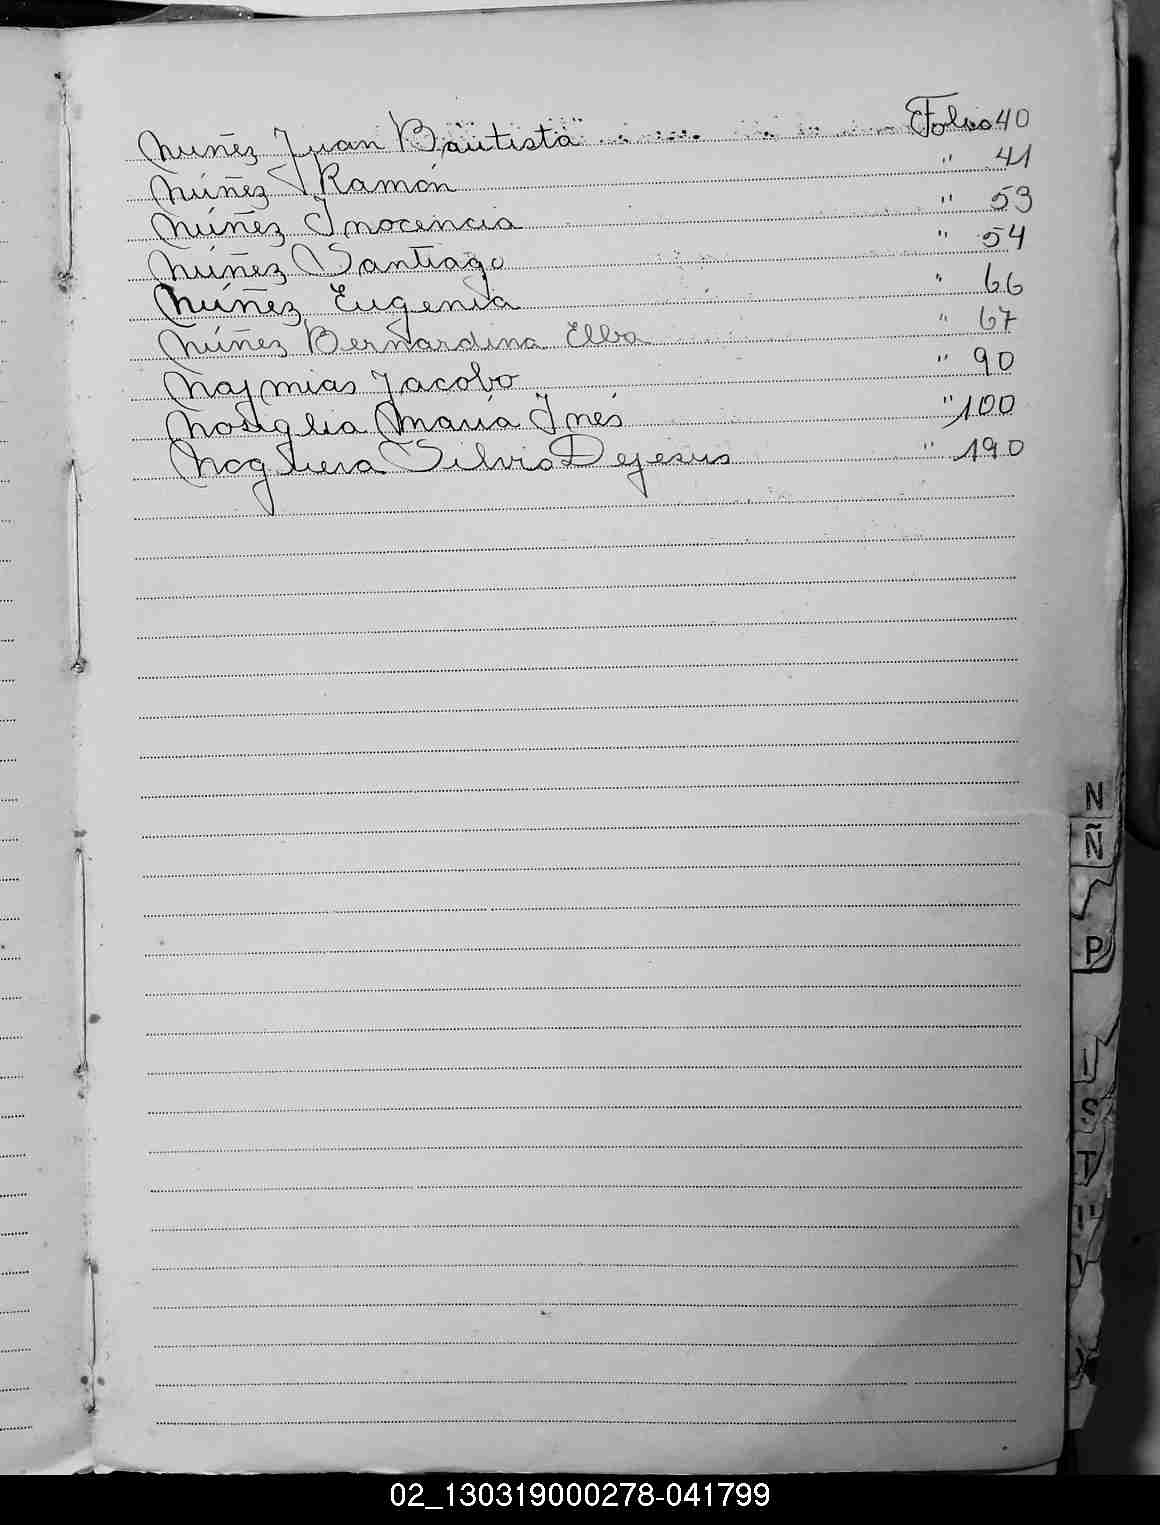 Nuñez Juan Bautista Folio 40
Núñez Ramón " 41
Núñez Inocencia " 53
Núñez Santiago " 54
Núñez Eugenia " 66
Núñez Bernardina Elba " 67
Najmias Jacobo " 90
Nosiglia María Inés " 100
Noguera Silvio Dejesus " 190
N
Ñ
P
S
T
V
X
02_130319000278-041799